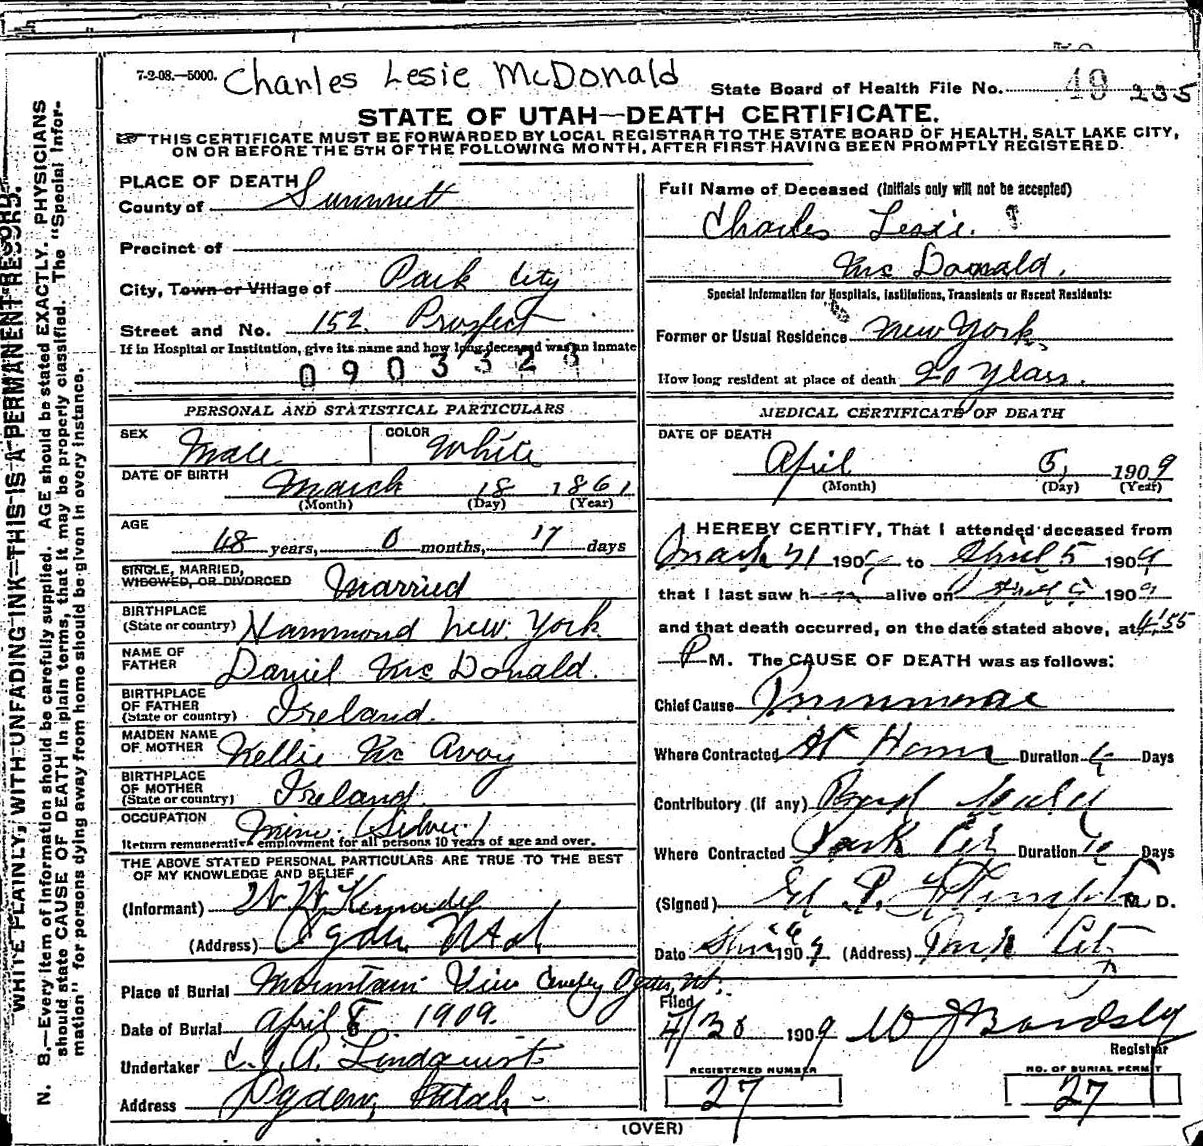 7-2-08.—5000. Charles Lesie McDonald
State Board of Health File No. 49 235
STATE OF UTAH—DEATH CERTIFICATE.
THIS CERTIFICATE MUST BE FORWARDED BY LOCAL REGISTRAR TO THE STATE BOARD OF HEALTH, SALT LAKE CITY,
ON OR BEFORE THE 5TH OF THE FOLLOWING MONTH, AFTER FIRST HAVING BEEN PROMPTLY REGISTERED.
WRITE PLAINLY, WITH UNFADING INK—THIS IS A PERMANENT RECORD.
N. B.—Every item of information should be carefully supplied. AGE should be stated EXACTLY. PHYSICIANS
should state CAUSE OF DEATH in plain terms, that it may be properly classified. The "Special Infor-
mation" for persons dying away from home should be given in every instance.
PLACE OF DEATH
County of Summett
Precinct of
City, Town or Village of Park City
Street and No. 152 Prospect
If in Hospital or Institution, give its name and how long deceased was an inmate
0903323
PERSONAL AND STATISTICAL PARTICULARS
SEX Male COLOR White
DATE OF BIRTH March 18 1861
(Month) (Day) (Year)
AGE
48 years, 0 months, 17 days
SINGLE, MARRIED,
WIDOWED, OR DIVORCED Married
BIRTHPLACE
(State or country) Hammond New York
NAME OF
FATHER Daniel McDonald.
BIRTHPLACE
OF FATHER
(State or country) Ireland.
MAIDEN NAME
OF MOTHER Nellie McAvoy
BIRTHPLACE
OF MOTHER
(State or country) Ireland.
OCCUPATION
Return remunerative employment for all persons 10 years of age and over.
THE ABOVE STATED PERSONAL PARTICULARS ARE TRUE TO THE BEST
OF MY KNOWLEDGE AND BELIEF
(Informant) Kennedy
(Address) Ogden Utah
Place of Burial Mountain View Ogden, Ut.
Date of Burial April 8 1909.
Undertaker Lindquist
Address Ogden, Utah
Full Name of Deceased (Initials only will not be accepted)
Charles Lesie.
McDonald.
Special Information for Hospitals, Institutions, Transients or Recent Residents:
Former or Usual Residence New York
How long resident at place of death 20 Years.
MEDICAL CERTIFICATE OF DEATH
DATE OF DEATH
April 5, 1909
(Month) (Day) (Year)
I HEREBY CERTIFY, That I attended deceased from
190 to April 5 1909
that I last saw h alive on April 5 1909
and that death occurred, on the date stated above, at 4.55
P M. The CAUSE OF DEATH was as follows:
Chief Cause
Where Contracted At Home Duration Days
Contributory (if any)
Where Contracted Park City Duration Days
(Signed) M. D.
Date 1909 (Address) Park City
Filed
4/30 1909 W J Bardsley
Registrar
REGISTERED NUMBER
27
NO. OF BURIAL PERMIT
27
(OVER)